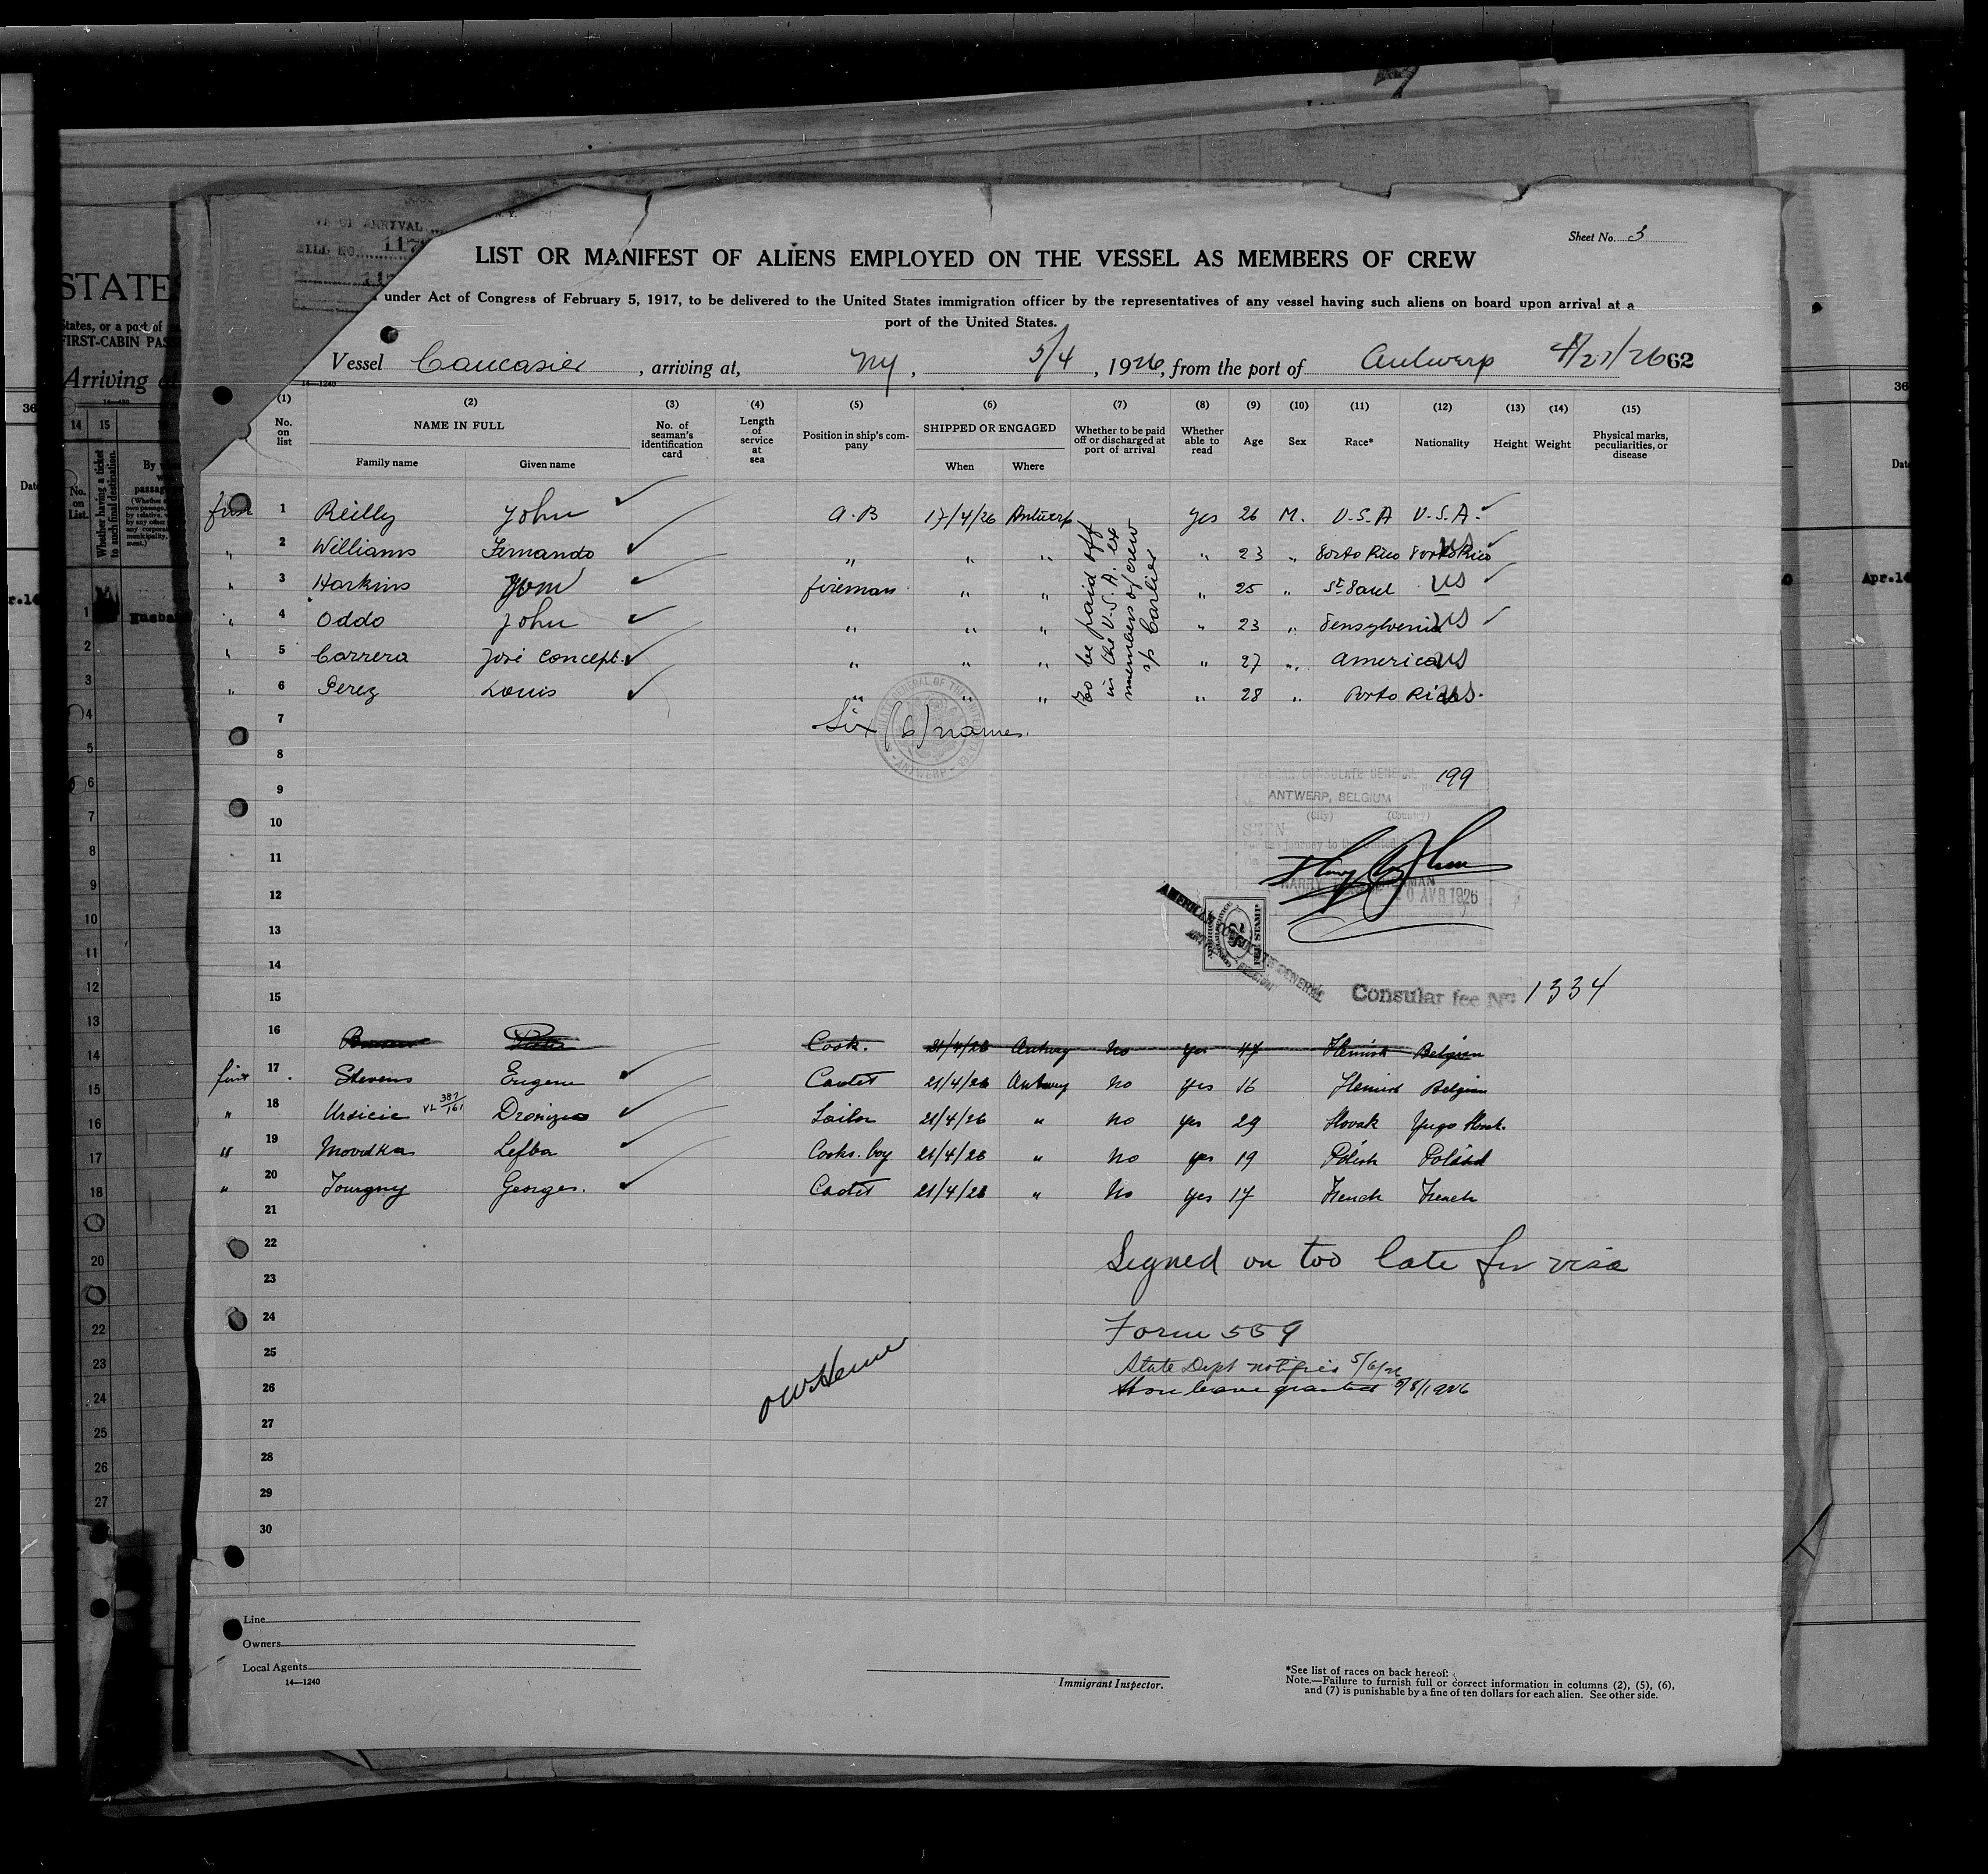 STATES
States, or a port of
FIRST-CABIN PAS
Arriving at
ARRIVAL
FILE NO. 117
N. Y.
Sheet No. 3
LIST OR MANIFEST OF ALIENS EMPLOYED ON THE VESSEL AS MEMBERS OF CREW
under Act of Congress of February 5, 1917, to be delivered to the United States immigration officer by the representatives of any vessel having such aliens on board upon arrival at a
port of the United States.
Vessel Caucasier, arriving at, NY, 5/4, 1926, from the port of Antwerp 4/21/26 62
14—1240
(1) (2) (3) (4) (5) (6) (7) (8) (9) (10) (11) (12) (13) (14) (15)
No. on list NAME IN FULL Family name Given name No. of seaman's identification card Length of service at sea Position in ship's company SHIPPED OR ENGAGED When Where Whether to be paid off or discharged at port of arrival Whether able to read Age Sex Race* Nationality Height Weight Physical marks, peculiarities, or disease
first 1 Reilly John A.B 17/4/26 Antwerp yes 26 M. U.S.A U.S.A.
" 2 Williams Fernando " " " " 23 " Porto Rico Porto Rico US
" 3 Harkins Tom fireman " " " 25 " St Paul US
" 4 Oddo John " " " " 23 " Pensylvenia US
" 5 Carrera José Concept. " " " " 27 " America US
" 6 Perez Louis " " " " 28 " Porto Rico US.
To be paid off
in the U.S.A. ex
members of crew
s/s Carlier
7 Six (6) names.
8
9
10
11
12
13
14
15
ANTWERP
AMERICAN CONSULATE GENERAL
199
ANTWERP, BELGIUM
(City) (Country)
SEEN
For the journey to the United
HARRY
20 AVR 1926
AMERICAN CONSULATE GENERAL
FEE STAMP
Consular fee No 1334
16 Cook. 21/4/26 Antwerp No yes 47 Flemish Belgian
first 17 Stevens Eugene Cadet 21/4/26 Antwerp No yes 16 Flemish Belgian
" 18 Ursicic VL 387/161 Sailor 21/4/26 " No yes 29 Slovak Yugo Slovak.
" 19 Movidka Lefba Cooks. boy 21/4/26 " No yes 19 Polish Poland
" 20 Tourgny Georges. Cadet 21/4/26 " No yes 17 French French
21
22 Signed on too late for visa
23
24 Form 559
25 State Dept notified 5/6/26
26 Shore leave granted 5/8/1926
27
28
29
30
Line
Owners
Local Agents
14—1240
Immigrant Inspector.
*See list of races on back hereof.
Note.—Failure to furnish full or correct information in columns (2), (5), (6),
and (7) is punishable by a fine of ten dollars for each alien. See other side.